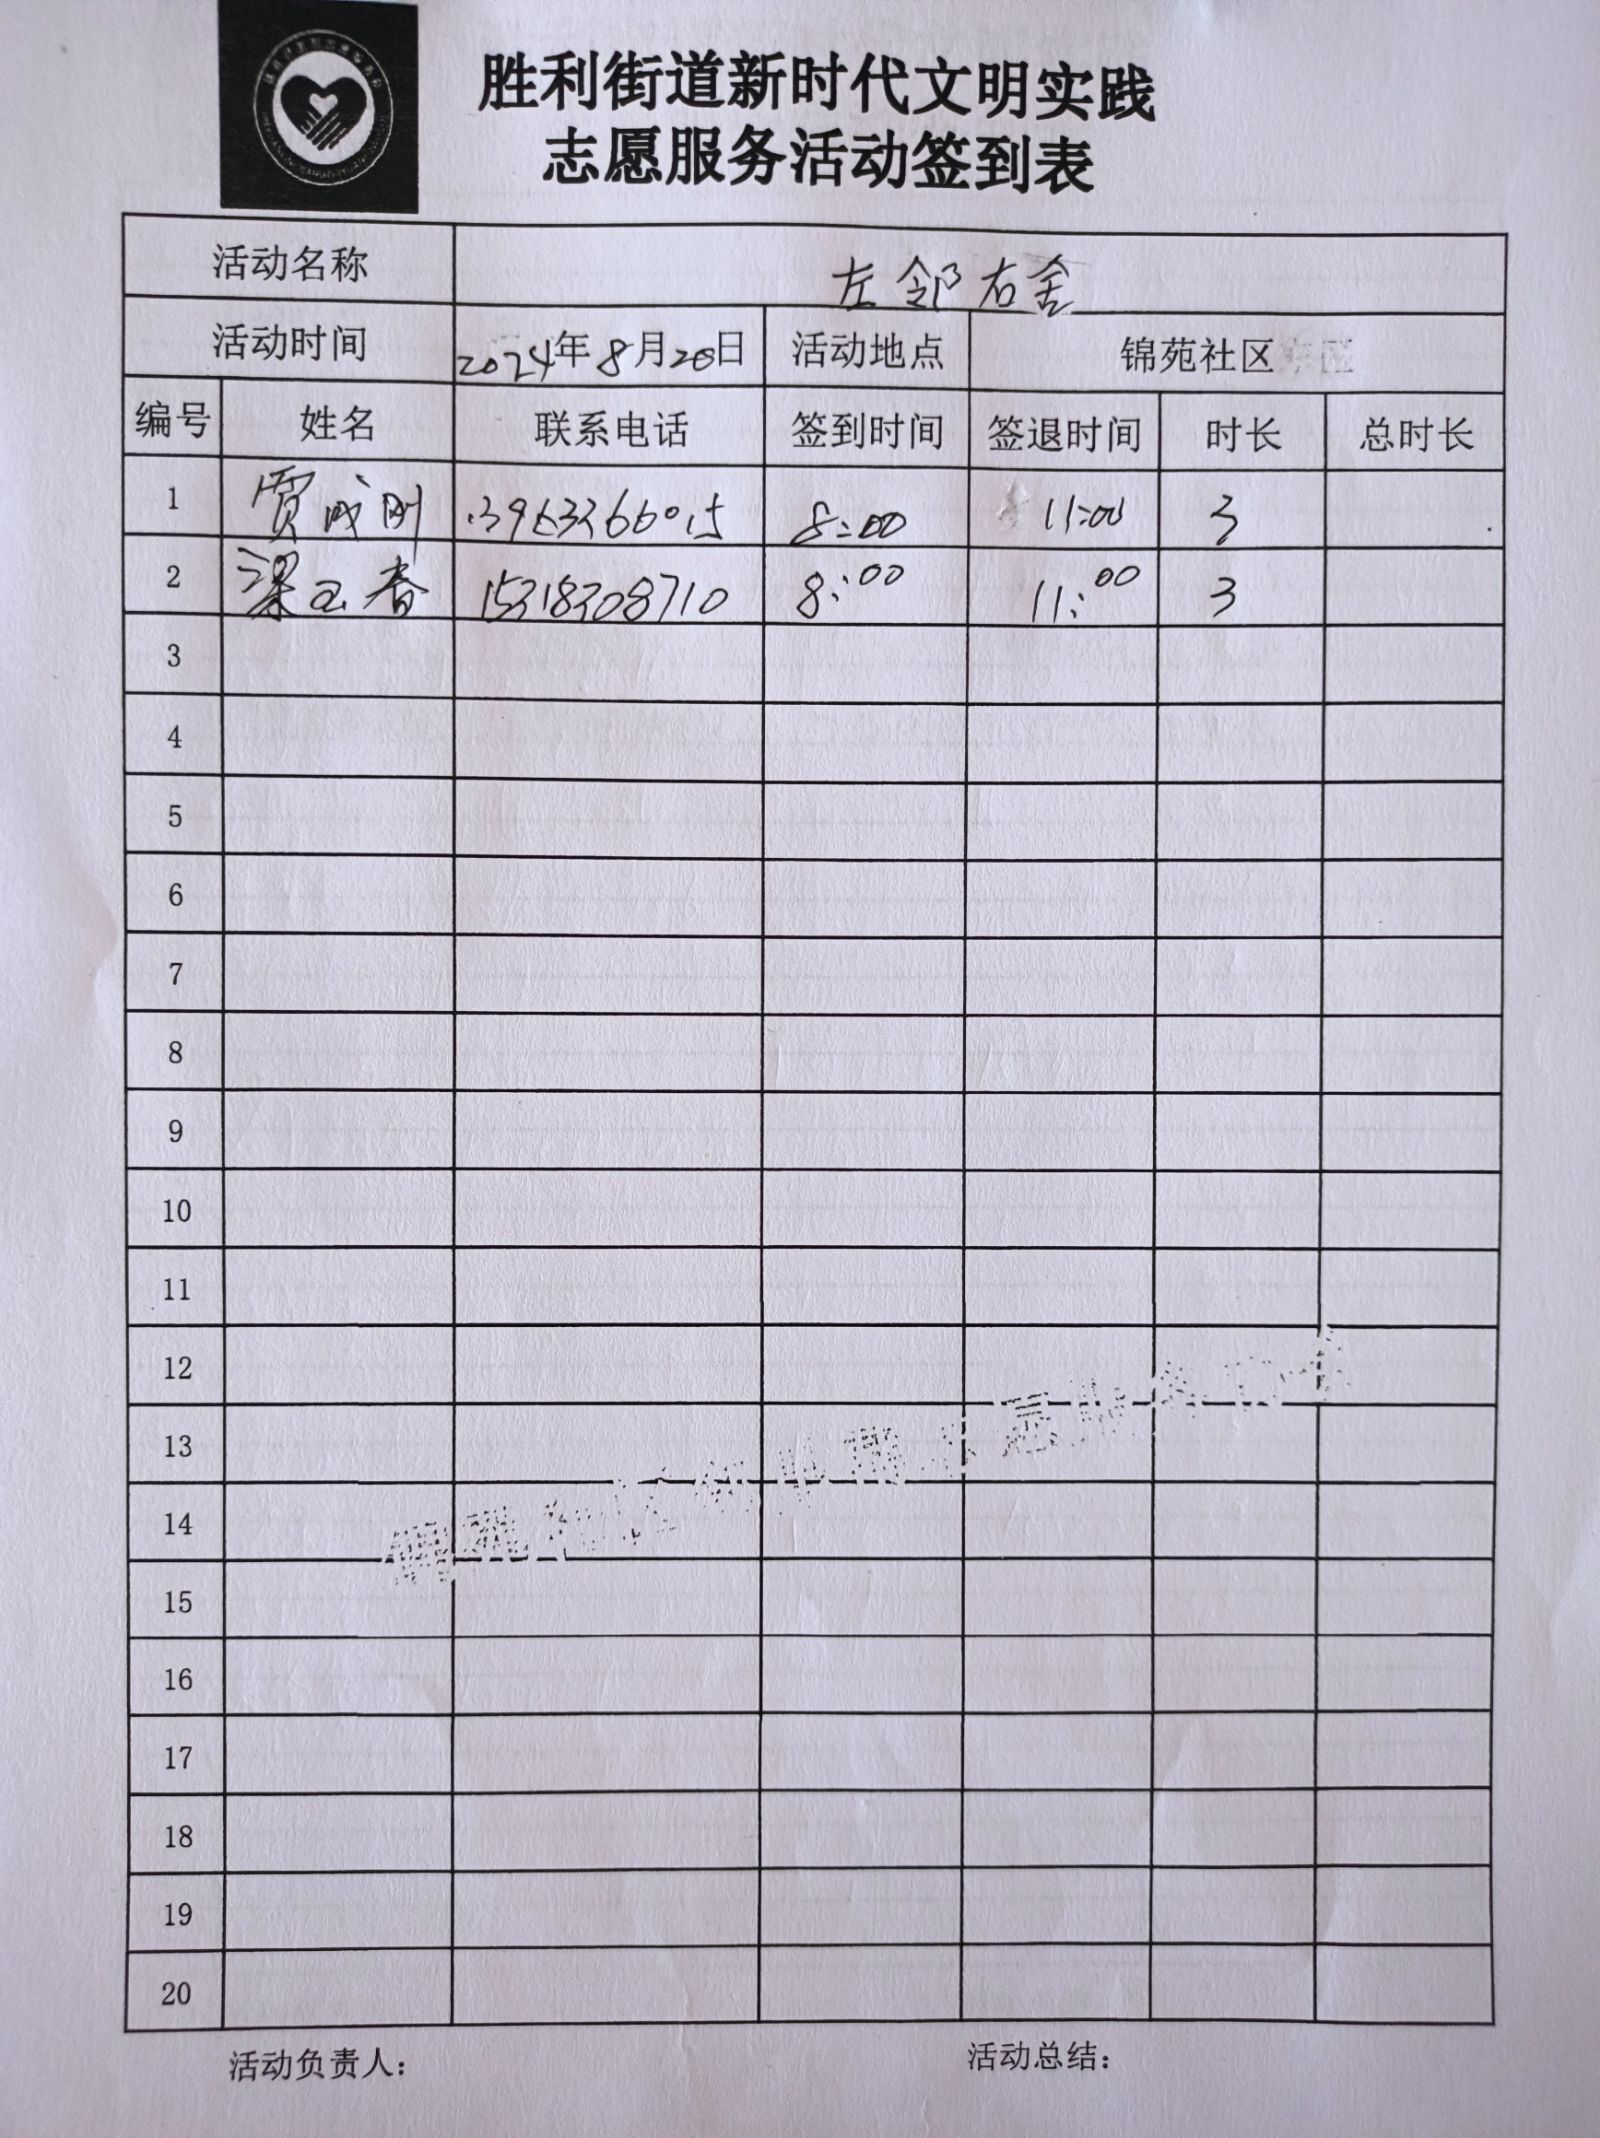 胜利街道新时代文明实践
志愿服务活动签到表
活动名称 左邻右舍
活动时间 2024年8月20日 活动地点 锦苑社区
编号 姓名 联系电话 签到时间 签退时间 时长 总时长
1 贾成刚 13963366015 8:00 11:00 3
2 梁玉春 15318308710 8:00 11:00 3
3
4
5
6
7
8
9
10
11
12
13
14
15
16
17
18
19
20
活动负责人： 活动总结：